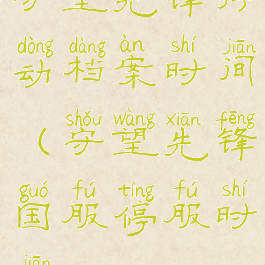 dòng dàng àn shí jiān
动档案时间
shǒu wàng xiān fēng
(守望先锋
guó fú tíng fú shí
国服停服时
jiān